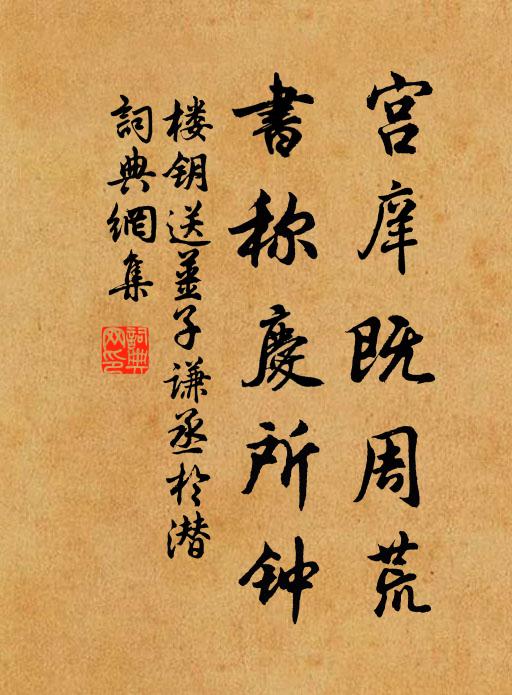 宫庠既周荒
書称慶所钟
楼钥送薑子谦丞於潜
詞典網集
詞典网印